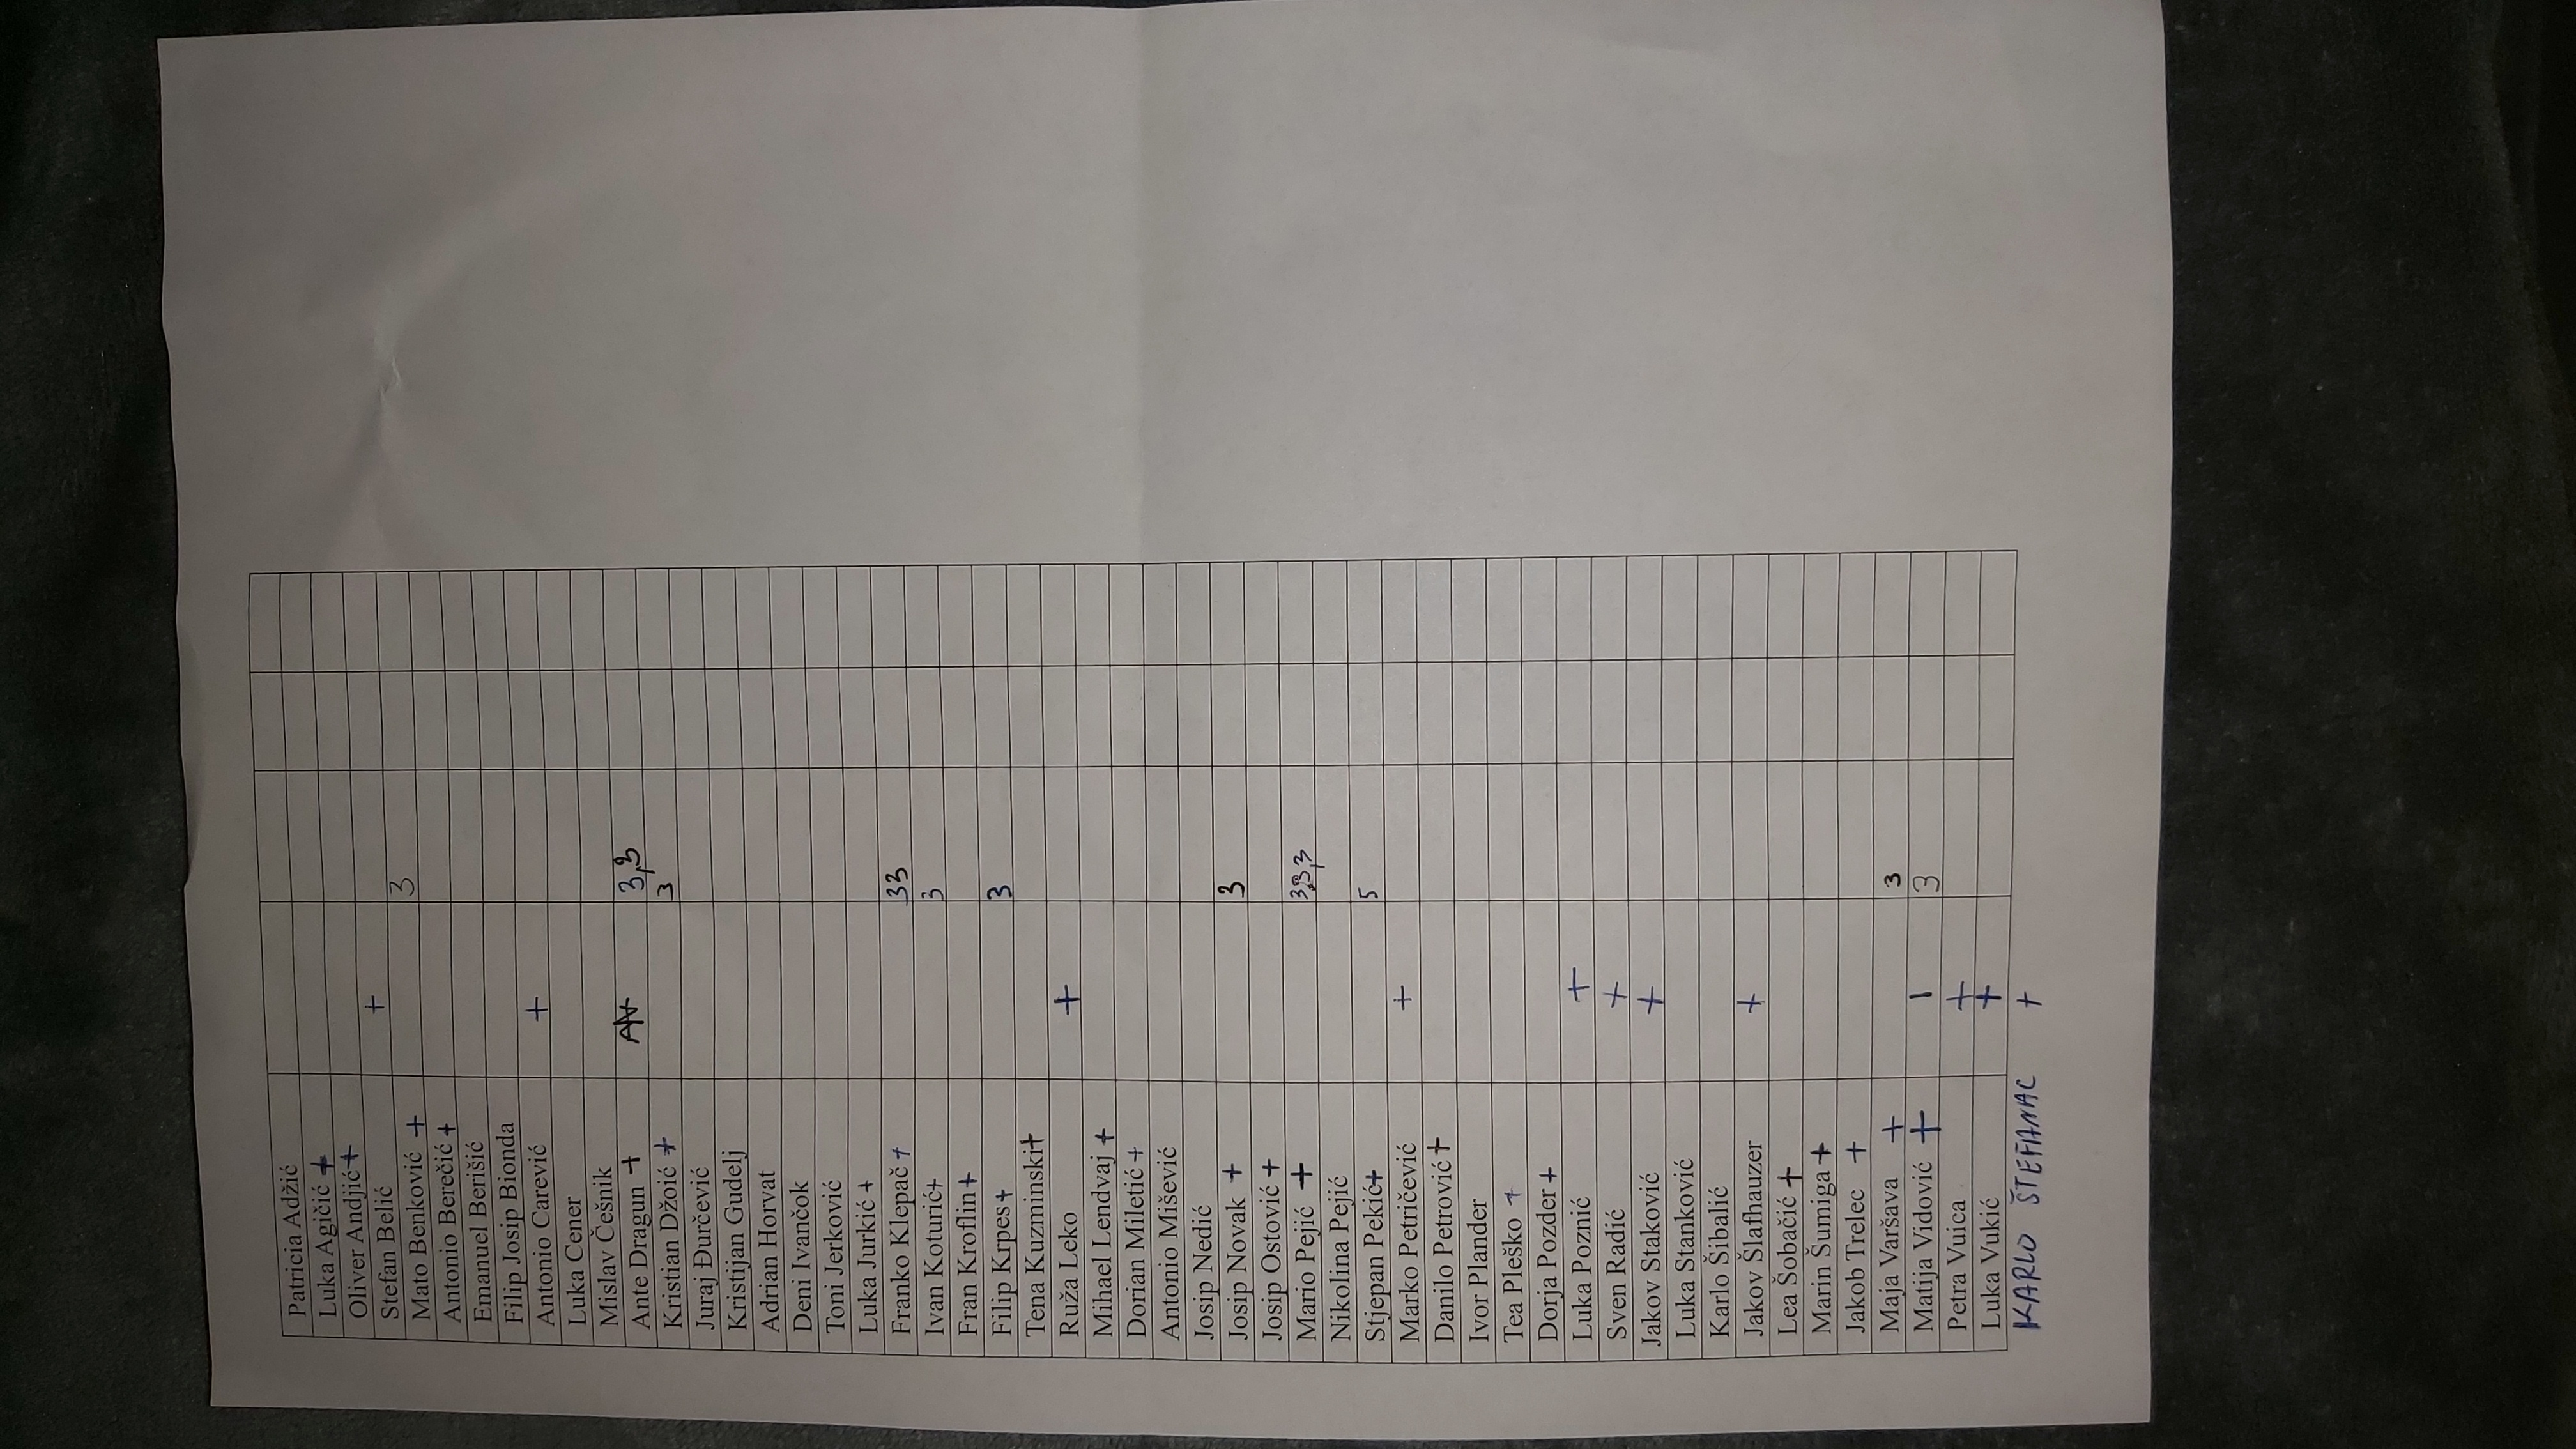 Patricia Adžić
Luka Agičić +
Oliver Andjić +
Stefan Belić +
Mato Benković + 3
Antonio Berečić +
Emanuel Berišić
Filip Josip Bionda
Antonio Carević +
Luka Cener
Mislav Češnik
Ante Dragun + 3,3
Kristian Džoić + 3
Juraj Đurčević
Kristijan Gudelj
Adrian Horvat
Deni Ivančok
Toni Jerković
Luka Jurkić +
Franko Klepač + 33
Ivan Koturić + 3
Fran Kroflin +
Filip Krpes + 3
Tena Kuzminski +
Ruža Leko +
Mihael Lendvaj +
Dorian Miletić +
Antonio Mišević
Josip Nedić
Josip Novak + 3
Josip Ostović +
Mario Pejić + 3,3,3
Nikolina Pejić
Stjepan Pekić + 5
Marko Petričević +
Danilo Petrović +
Ivor Plander
Tea Pleško +
Dorja Pozder +
Luka Poznić +
Sven Radić +
Jakov Staković +
Luka Stanković
Karlo Šibalić
Jakov Šlafhauzer +
Lea Šobačić +
Marin Šumiga +
Jakob Trelec +
Maja Varšava + 3
Matija Vidović + I 3
Petra Vuica +
Luka Vukić +
KARLO ŠTEFANAC +